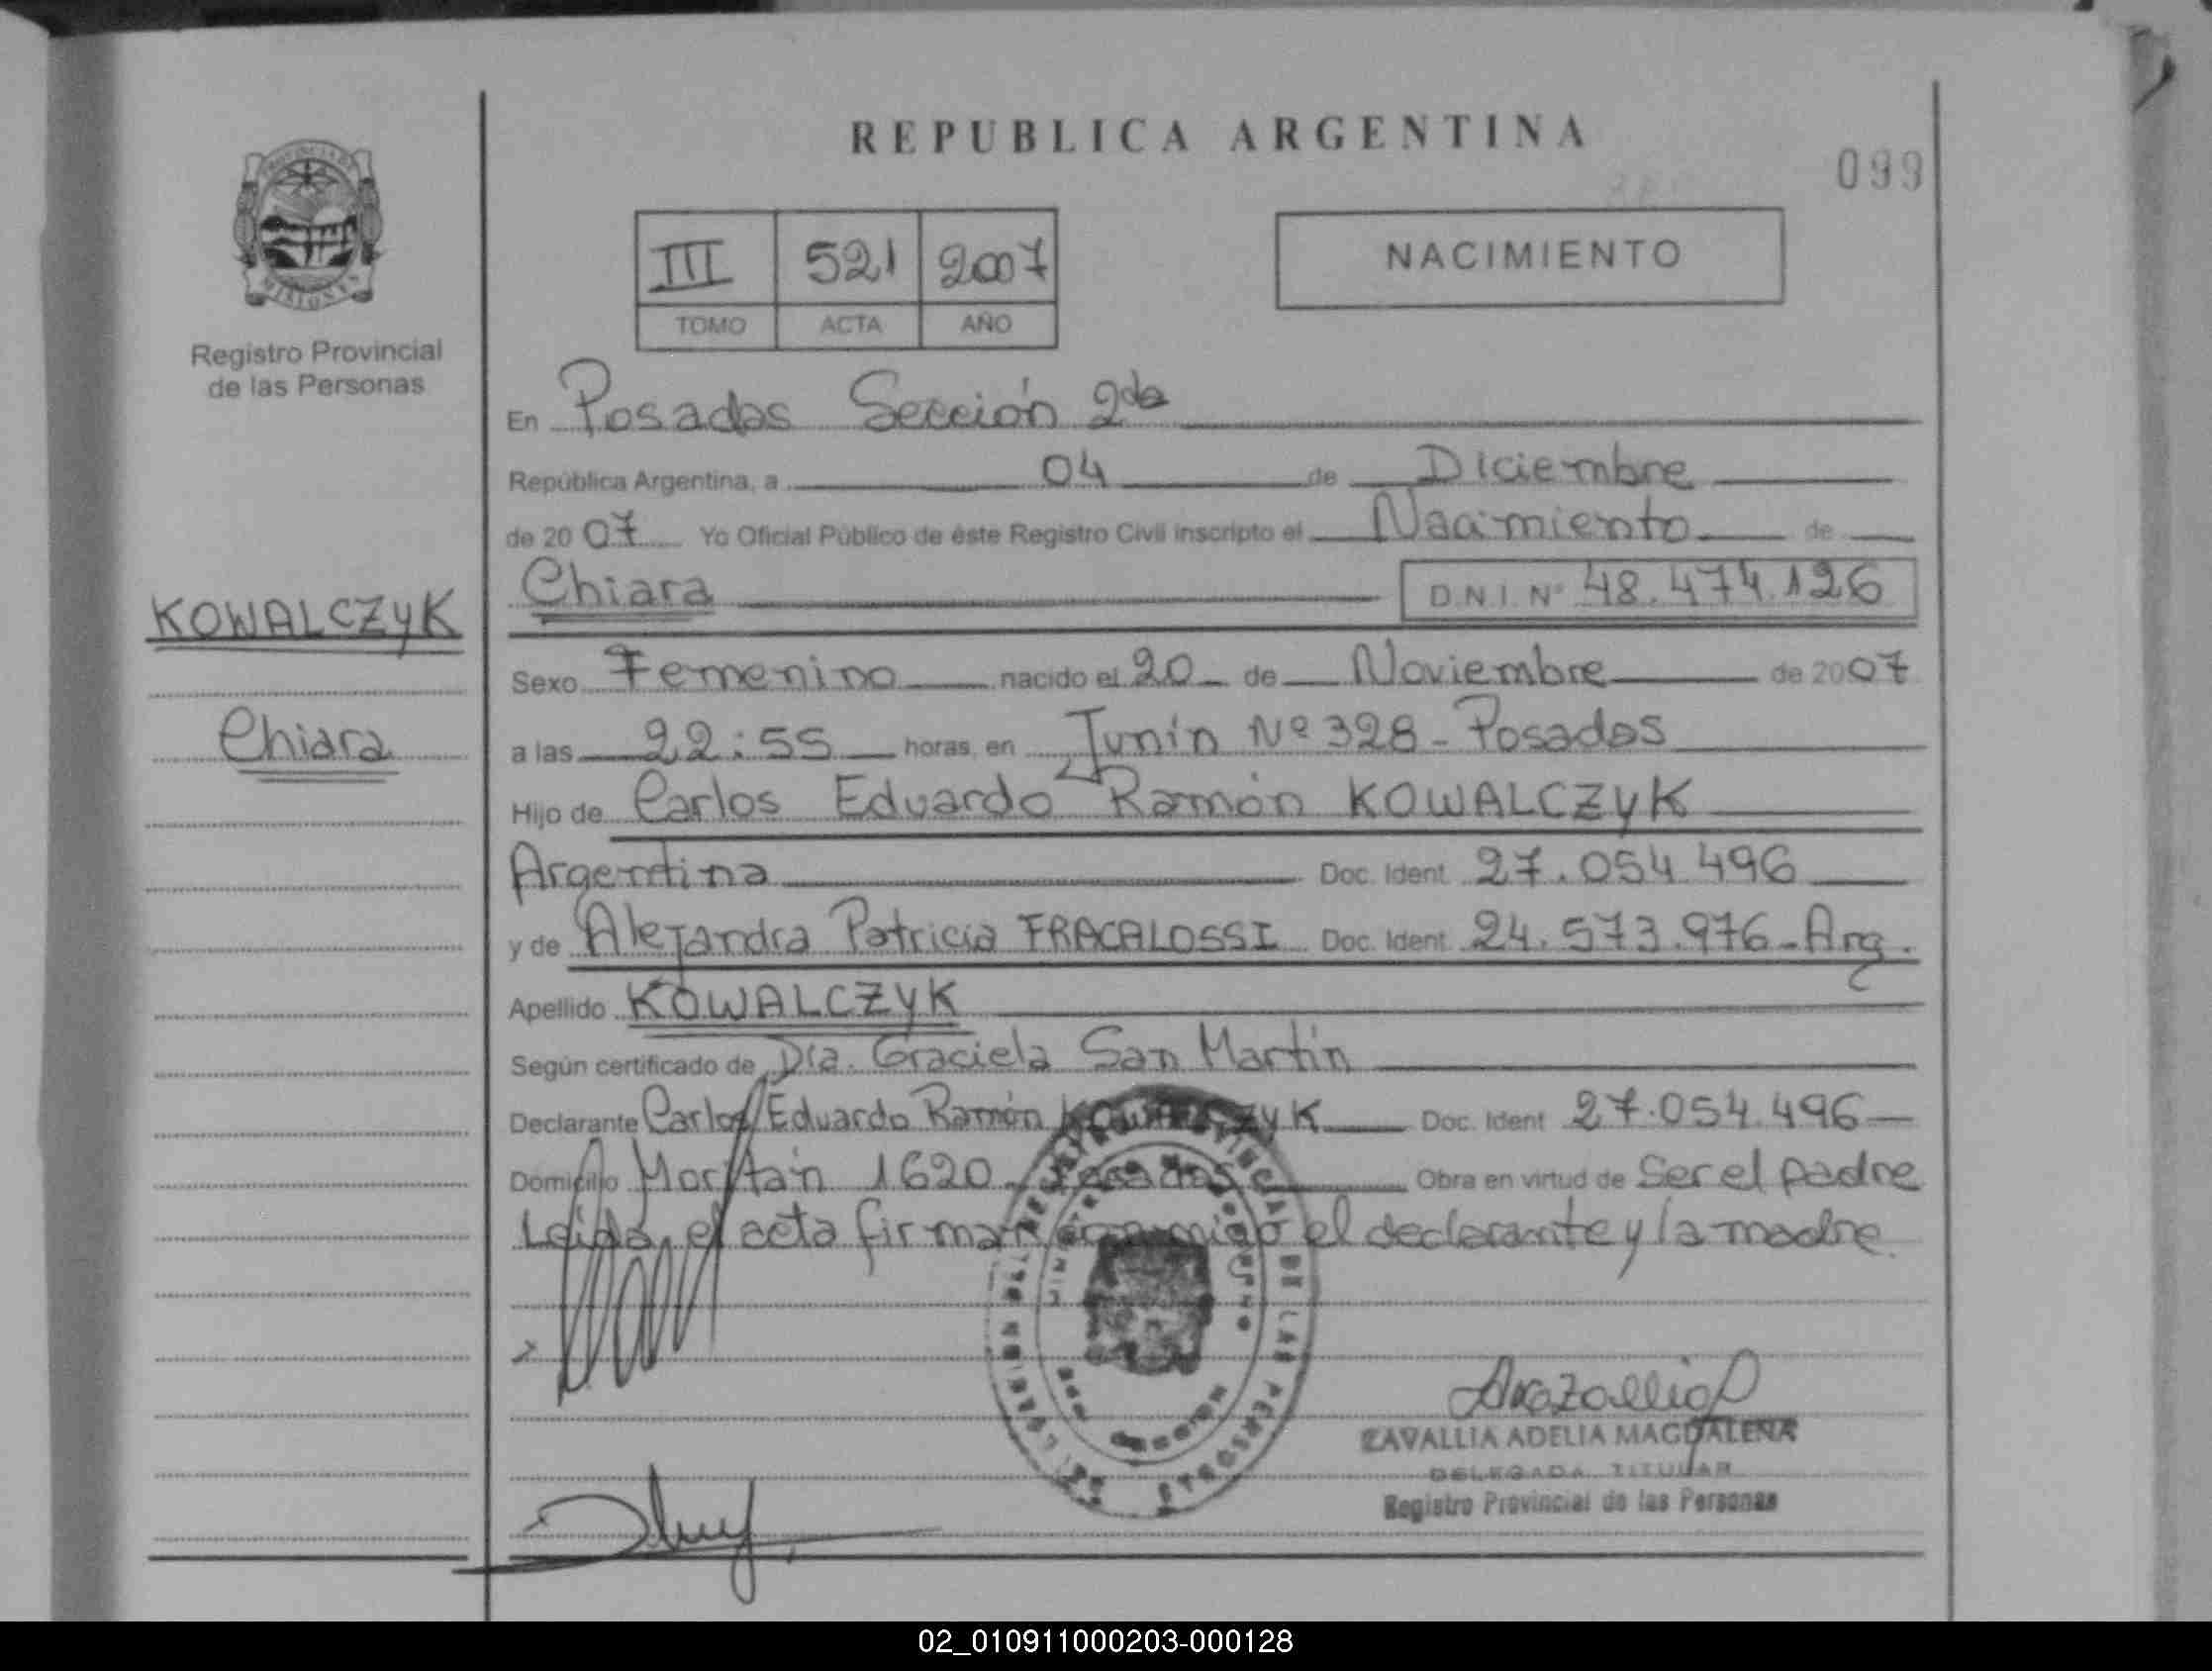 REPUBLICA ARGENTINA
099
PROVINCIA DE
MISIONES
Registro Provincial
de las Personas
III 521 2007
TOMO ACTA AÑO
NACIMIENTO
En Posadas Sección 2da
República Argentina, a 04 de Diciembre
de 20 07 Yo Oficial Público de éste Registro Civil inscripto el Nacimiento de
Chiara D.N.I. Nº 48.474.126
KOWALCZYK
Chiara
Sexo Femenino nacido el 20 de Noviembre de 2007
a las 22:55 horas, en Junín Nº 328 - Posadas
Hijo de Carlos Eduardo Ramón KOWALCZYK
Argentina Doc. Ident 27.054.496
y de Alejandra Patricia FRACALOSSI Doc. Ident 24.573.976 - Arg.
Apellido KOWALCZYK
Según certificado de Dra. Graciela San Martín
Declarante Carlos Eduardo Ramón KOWALCZYK Doc. Ident 27.054.496
Domicilio 1620 - Posadas Obra en virtud de Ser el padre
Leída el acta firman conmigo el declarante y la madre.
ZAVALLIA ADELIA MAGDALENA
DELEGADA TITULAR
Registro Provincial de las Personas
02_010911000203-000128